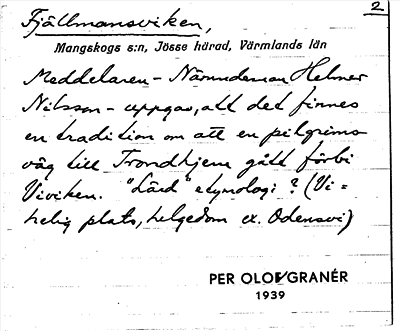 2
Fjällmansviken,
Mangskogs s:n, Jösse härad, Värmlands län
Meddelaren - Nämndeman Helmer
Nilsson - uppgav, att det finnes
en tradition om att en pilgrims-
väg till Trondhjem gått förbi
Viviken. "Lärd" etymologi? (Vi =
helig plats, helgedom ex. Odensvi)
PER OLOF GRANÉR
1939